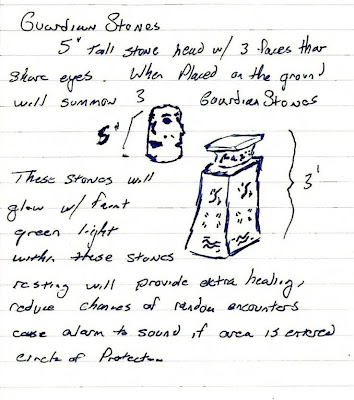 Guardian Stones
5" tall stone head w/ 3 faces that
share eyes. When Placed on the ground
will summon 3 Guardian Stones
5"
3'
These stones will
glow w/ faint
green light
within these stones
resting will provide extra healing,
reduce chances of random encounters
cause alarm to sound if area is entered
Circle of Protection